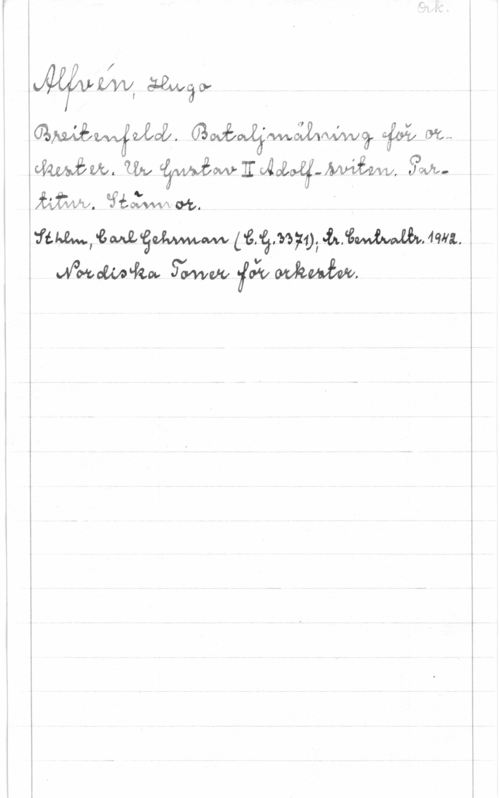 Ork.
Alfvén, Hugo
Breitenfeld. Bataljmålning för or-
kester. Ur Gustav II Adolf-sviten. Par-
titur. Stämmor.
Sthlm, Carl Gehrman (C.G.3371); tr. Centraltr. 1942.
Nordiska Toner för orkester.